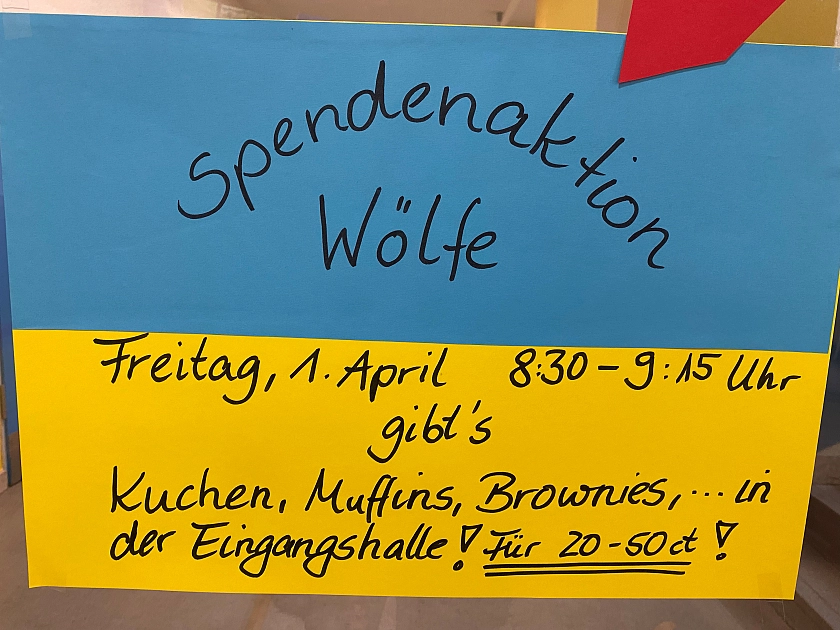 Spendenaktion
Wölfe
Freitag, 1. April 8:30 - 9:15 Uhr
gibt's
Kuchen, Muffins, Brownies, ... in
der Eingangshalle! Für 20-50ct!